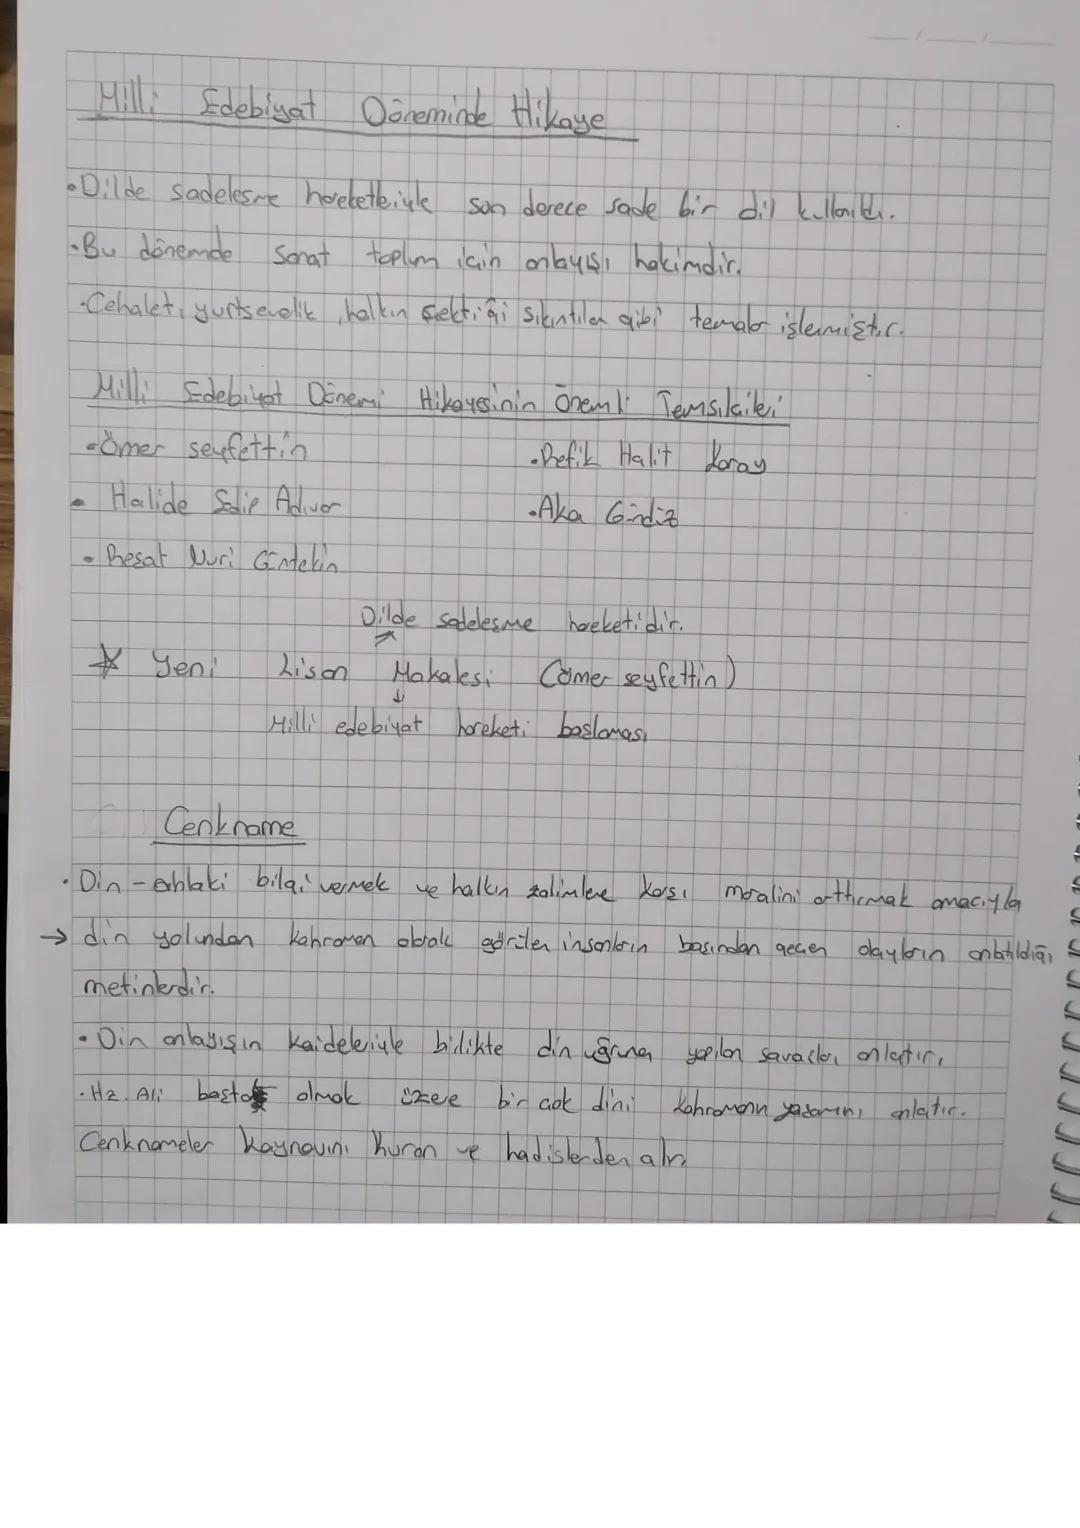 Milli Edebiyat Döneminde Hikaye
• Dilde sadeleşme hareketleriyle son derece sade bir dil kullanıldı.
• Bu dönemde sanat toplum için anlayışı hakimdir.
• Cehalet, yurtseverlik, halkın çektiği sıkıntılar gibi temalar işlenmiştir.
Milli Edebiyat Dönemi Hikayesinin Önemli Temsilcileri
• Ömer seyfettin
• Refik Halit Karay
• Halide Edip Adıvar
• Aka Gündüz
• Resat Nuri Güntekin
Dilde sadelesme hareketidir.
☆ Yeni Lisan Makalesi (ömer seyfettin)
↓
Milli edebiyat hareketi baslaması
Cenkname
• Din - ahlaki bilgi vermek ve halkın zalimlere karsı moralini arttırmak amacıyla
→ din yolundan kahraman olarak görülen insanların basından gecen olayların anlatıldığı
metinlerdir.
• Din anlayışın kaideleriyle birlikte din uğruna yapılan savasları anlatır.
• Hz. Ali basta olmak üzere bir cok dini kahramanın yasamını anlatır.
Cenknameler kaynavını kuran ve hadislerden alır.